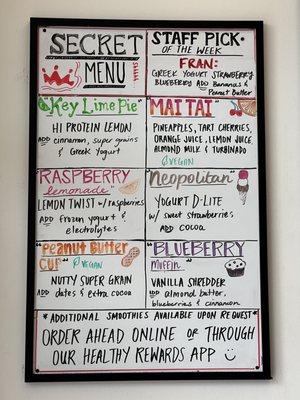 SECRET
MENU
SHHHH
STAFF PICK
OF THE WEEK
FRAN:
GREEK YOGURT STRAWBERRY
BLUEBERRY ADD BANANAS &
PEANUT BUTTER
"Key Lime Pie"
HI PROTEIN LEMON
ADD cinnamon, super grains
& Greek Yogurt
"MAI TAI"
PINEAPPLES, TART CHERRIES,
ORANGE JUICE, LEMON JUICE
ALMOND MILK & TURBINADO
VEGAN
"RASPBERRY
lemonade"
LEMON TWIST w/ raspberries
ADD frozen yogurt &
electrolytes
"Neopolitan"
YOGURT D-LITE
w/ sweet strawberries
ADD cocoa
"Peanut Butter
CUP"
VEGAN
NUTTY SUPER GRAIN
ADD dates & extra cocoa
"BLUEBERRY
Muffin"
VANILLA SHREDDER
ADD almond butter,
blueberries & cinnamon
*ADDITIONAL SMOOTHIES AVAILABLE UPON REQUEST*
ORDER AHEAD ONLINE or THROUGH
OUR HEALTHY REWARDS APP